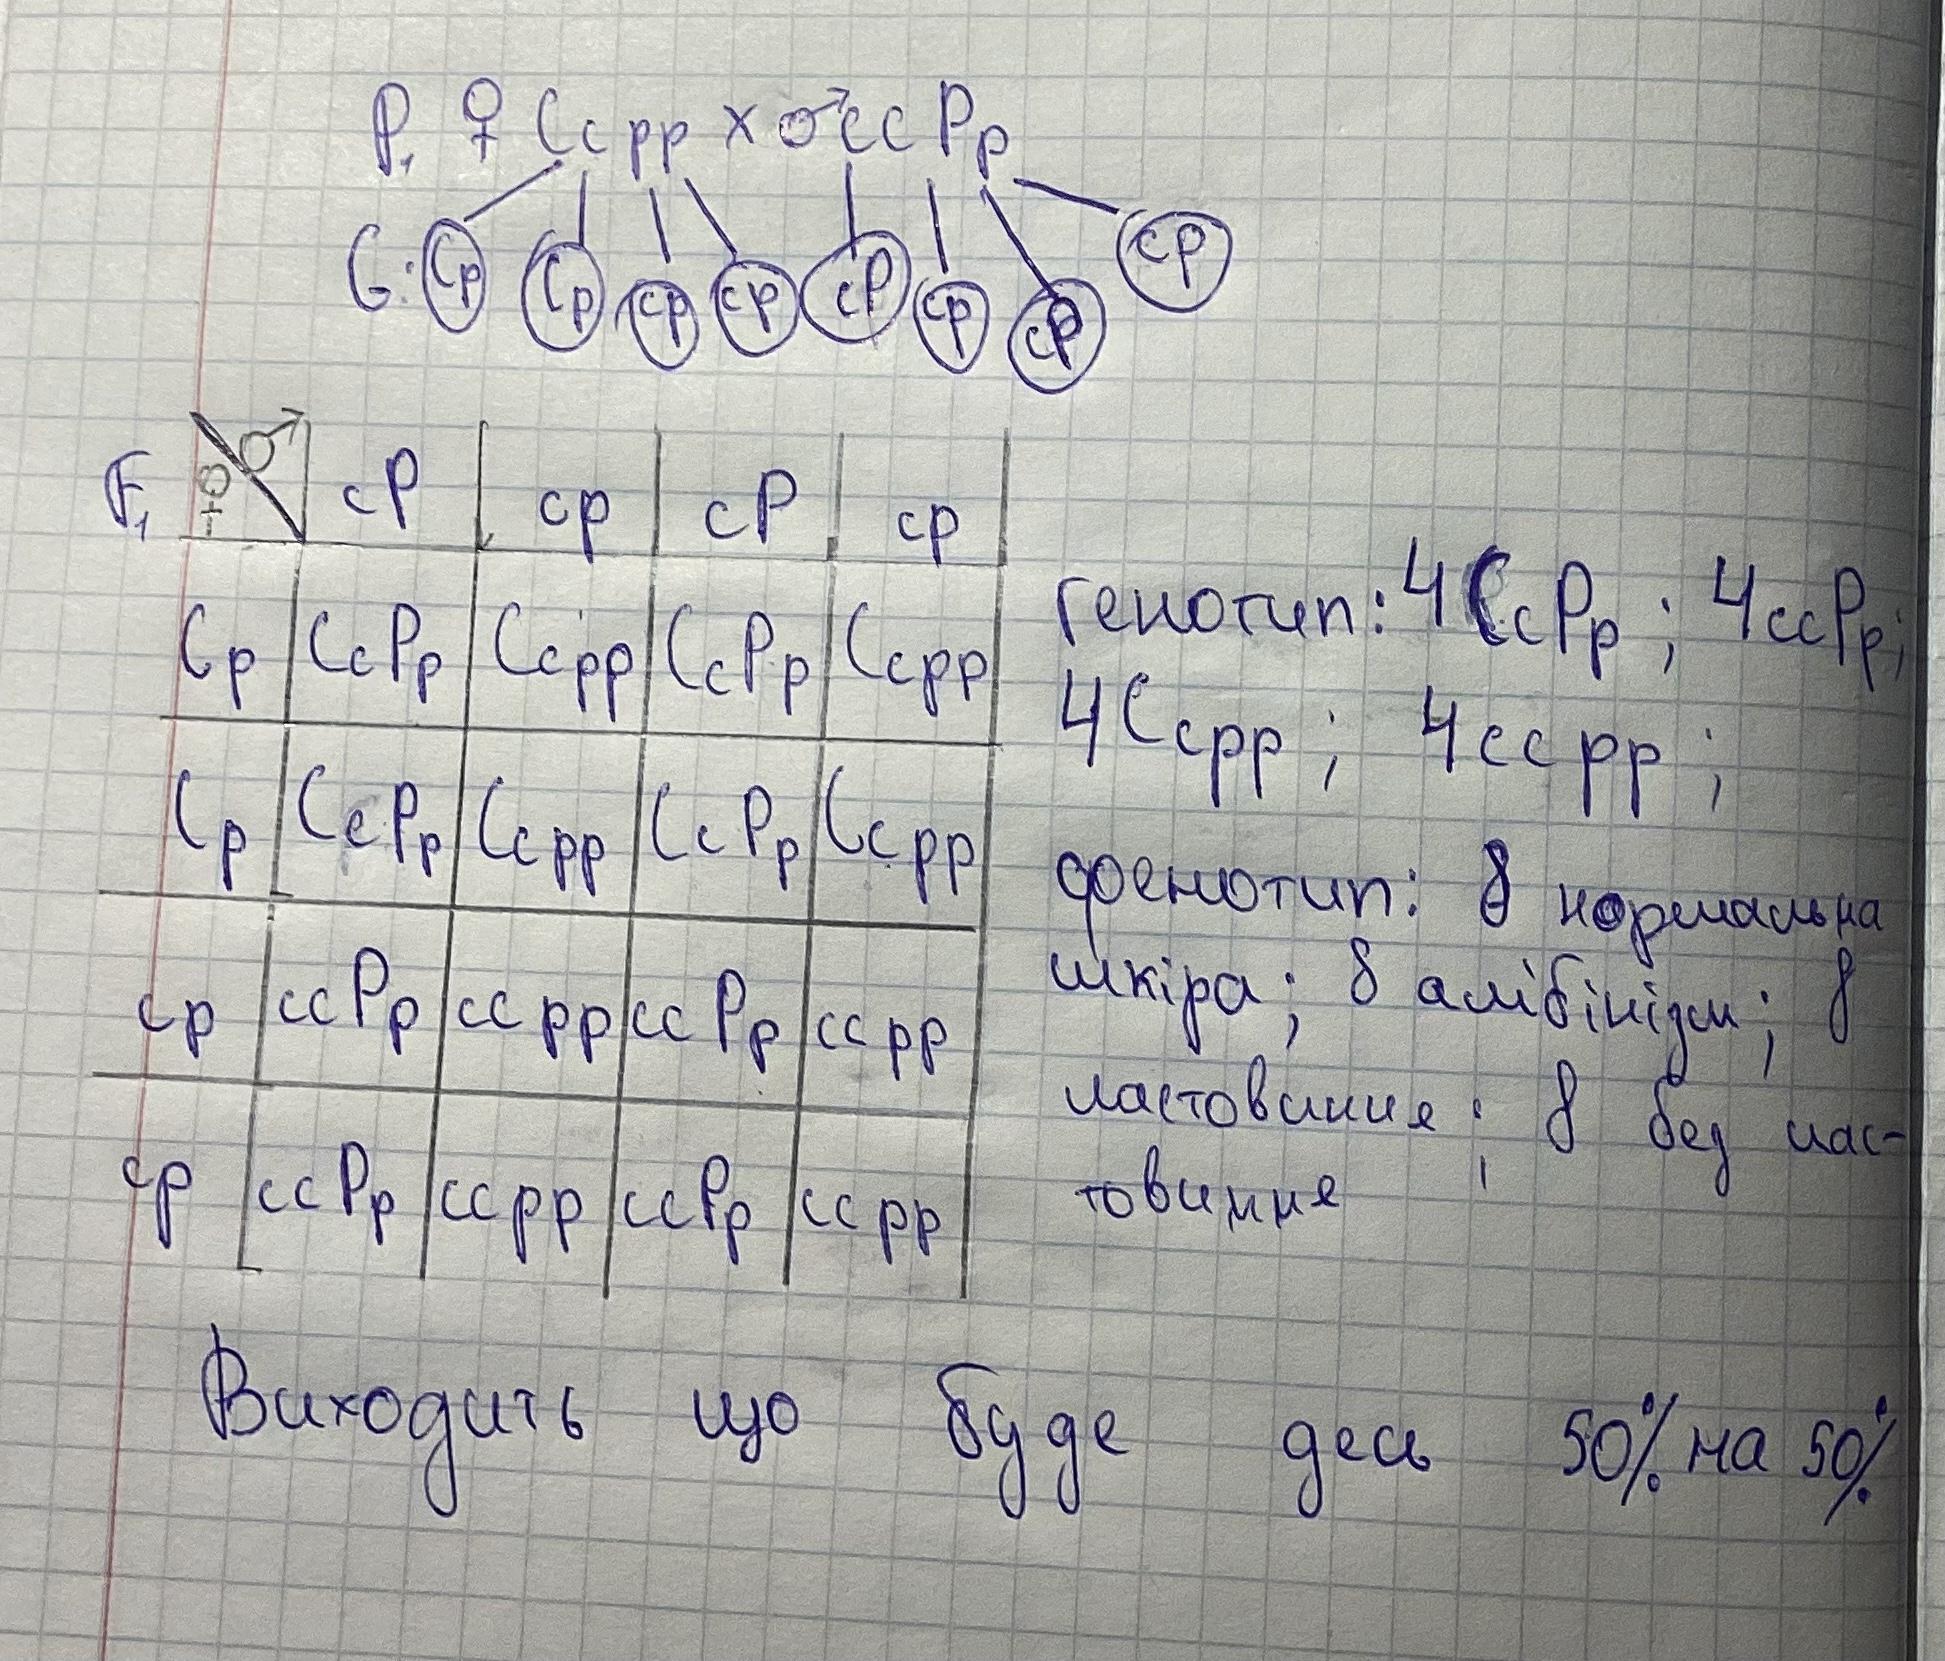 P₁ ♀ Ccpp × ♂ ccPp
G: Cp Cp cp cp cP cp cP cp
F₁ ♀ ♂ cP cp cP cp
Cp CcPp Ccpp CcPp Ccpp
Cp CcPp Ccpp CcPp Ccpp
cp ccPp ccpp ccPp ccpp
cp ccPp ccpp ccPp ccpp
генотип: 4 CcPp; 4 ccPp;
4 Ccpp; 4 ccpp;
фенотип: 8 нормальна
шкіра; 8 алібінізм; 8
ластовиння; 8 без лас-
товиння
Виходить що буде десь 50% на 50%